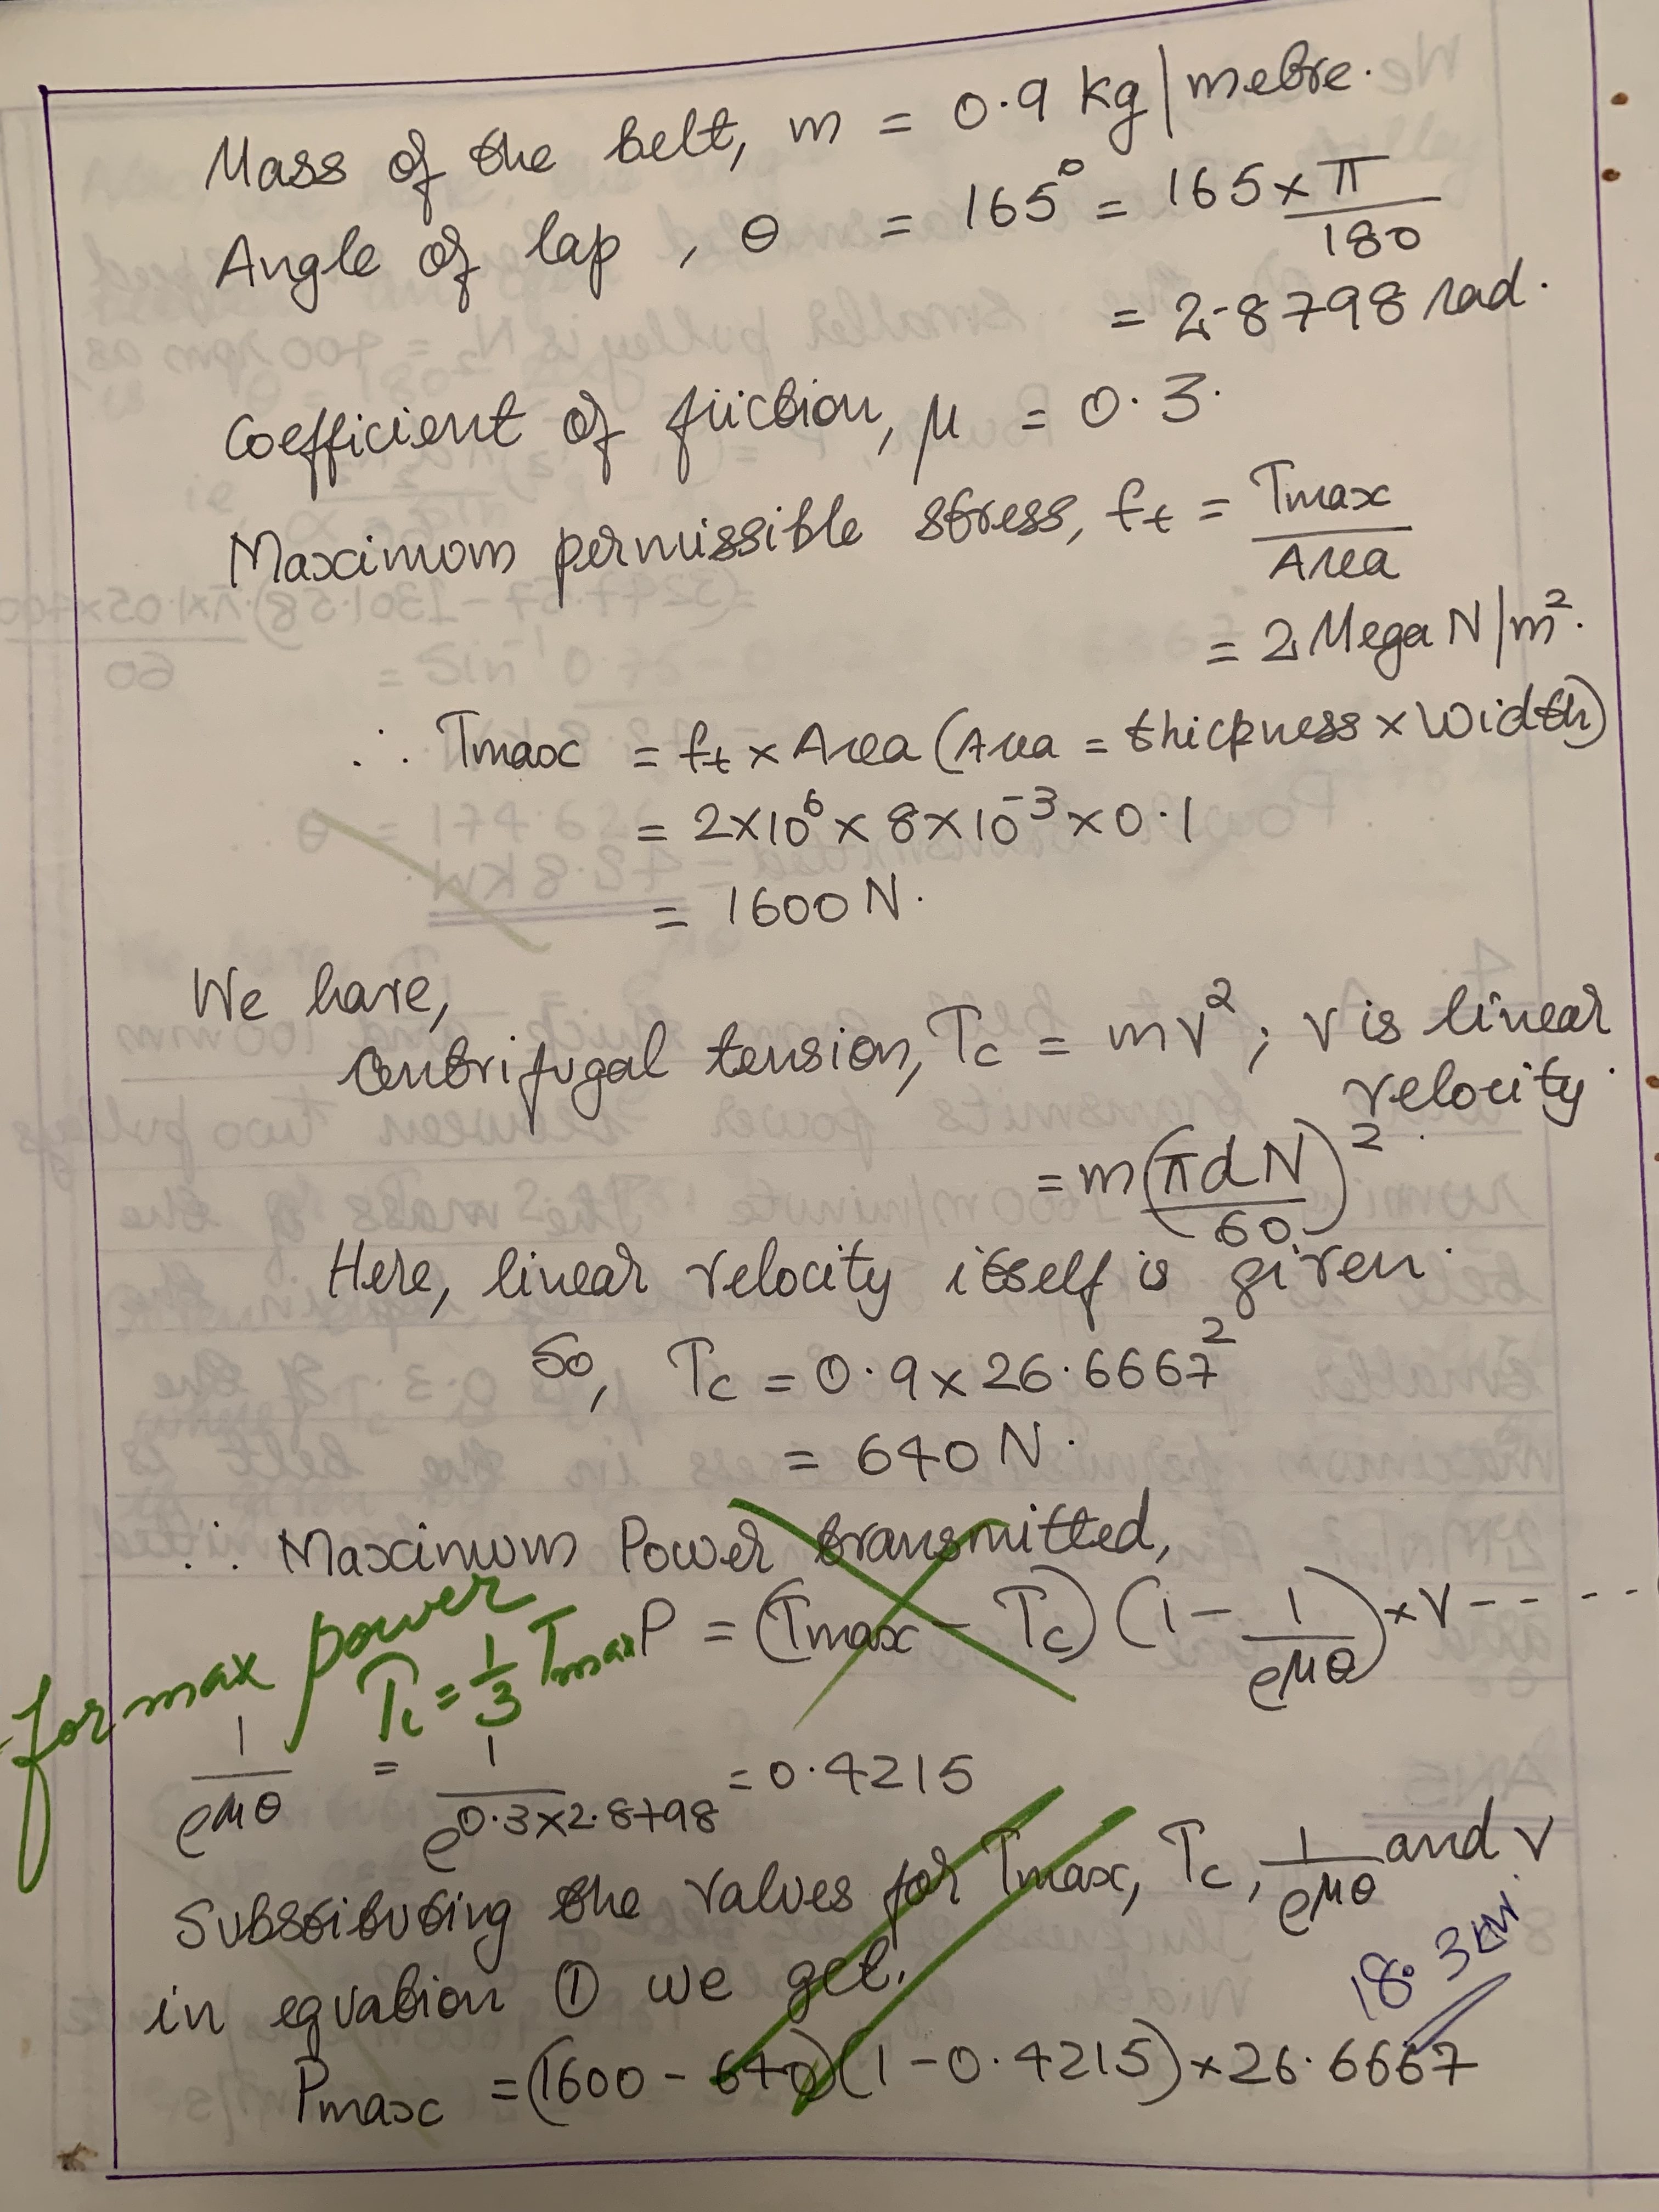 Mass of the belt, m = 0.9 kg/metre.
Angle of lap, θ = 165° = 165 × π/180
= 2.8798 rad.
Coefficient of friction, μ = 0.3.
Maximum permissible stress, ft = Tmax/Area
= 2 Mega N/m².
∴ Tmax = ft × Area (Area = thickness × Width)
= 2×10⁶ × 8×10⁻³ × 0.1
= 1600 N.
We have,
Centrifugal tension, Tc = mv²; v is linear
velocity.
= m(πdN/60)².
Here, linear velocity itself is given.
So, Tc = 0.9 × 26.6667²
= 640 N.
∴ Maximum Power transmitted,
for max power
Tc = 1/3 Tmax
P = (Tmax - Tc) (1 - 1/e^μθ) × v - - - - -
1/e^μθ = 1/e^0.3×2.8798 = 0.4215
Substituting the values for Tmax, Tc, 1/e^μθ and v
in equation ① we get,
18.3 kW
Pmax = (1600 - 640) (1 - 0.4215) × 26.6667